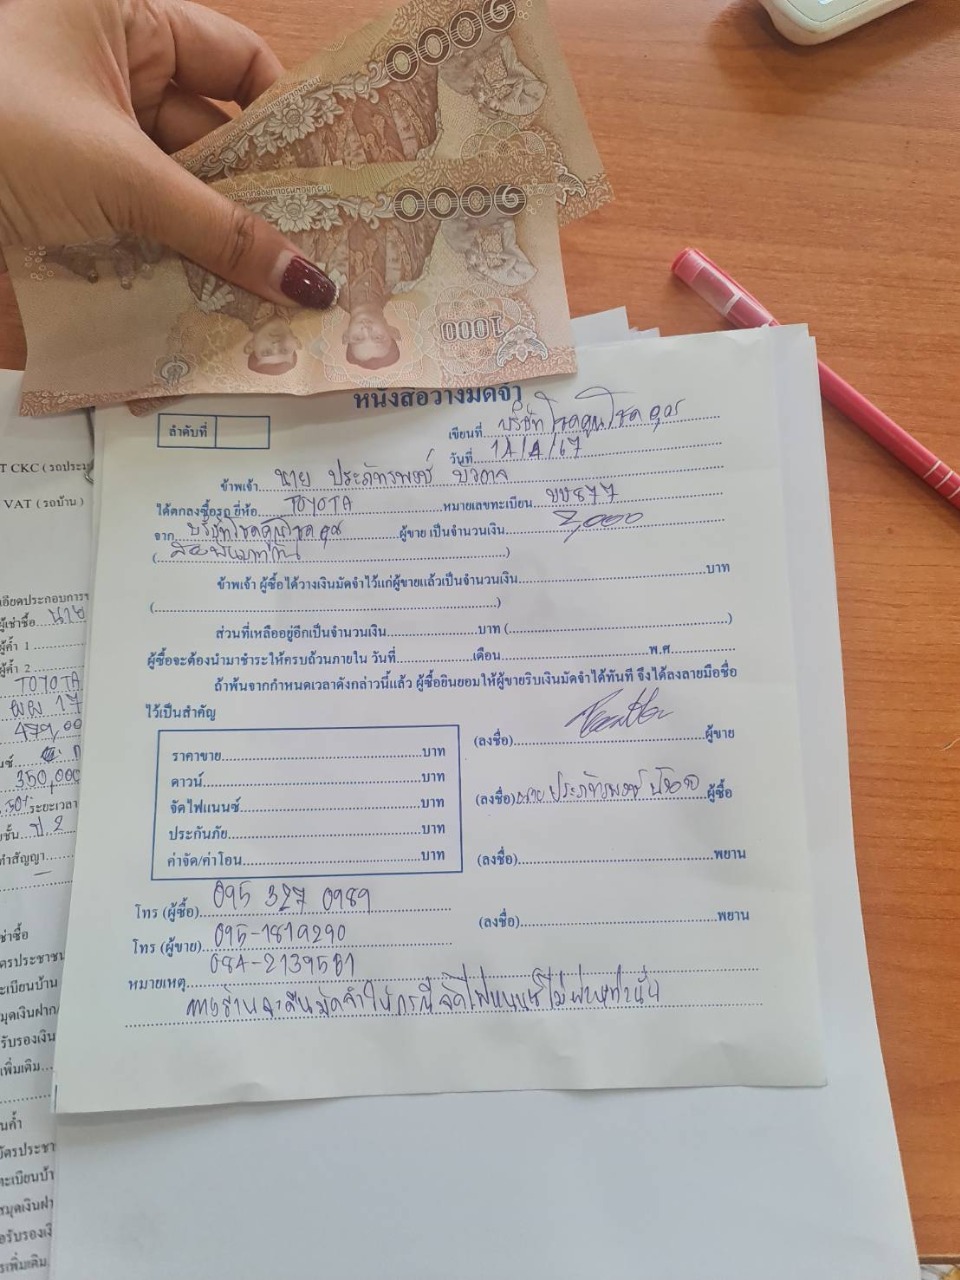 1000
หนังสือวางมัดจำ
ลำดับที่
เขียนที่ บริษัท โชคคูณโชค
วันที่ 14/4/67
ข้าพเจ้า นาย ประภัทรพงษ์
ได้ตกลงซื้อรถ ยี่ห้อ TOYOTA หมายเลขทะเบียน 877
จาก บริษัทโชคคูณโชค ผู้ขาย เป็นจำนวนเงิน 2,000
(สองพันบาทถ้วน)
ข้าพเจ้า ผู้ซื้อได้วางเงินมัดจำไว้แก่ผู้ขายแล้วเป็นจำนวนเงิน บาท
( )
ส่วนที่เหลืออยู่อีกเป็นจำนวนเงิน บาท ( )
ผู้ซื้อจะต้องนำมาชำระให้ครบถ้วนภายใน วันที่ เดือน พ.ศ.
ถ้าพ้นจากกำหนดเวลาดังกล่าวนี้แล้ว ผู้ซื้อยินยอมให้ผู้ขายริบเงินมัดจำได้ทันที จึงได้ลงลายมือชื่อ
ไว้เป็นสำคัญ
ราคาขาย บาท
ดาวน์ บาท
จัดไฟแนนซ์ บาท
ประกันภัย บาท
ค่าจัด/ค่าโอน บาท
(ลงชื่อ) ผู้ขาย
(ลงชื่อ) นาย ประภัทรพงษ์ ผู้ซื้อ
(ลงชื่อ) พยาน
(ลงชื่อ) พยาน
โทร (ผู้ซื้อ) 095 327 0989
โทร (ผู้ขาย) 095-1819290
084-2139581
หมายเหตุ
ทางร้านจะคืนมัดจำให้กรณีจัดไฟแนนซ์ไม่ผ่านเท่านั้น
T CKC (รถประ
VAT (รถบ้าน)
ผู้เช่าซื้อ นาย
ผู้ค้ำ 1
ผู้ค้ำ 2
TOYOTA
350,000
ระยะเวลา
ชั้น ปี 2
ทำสัญญา